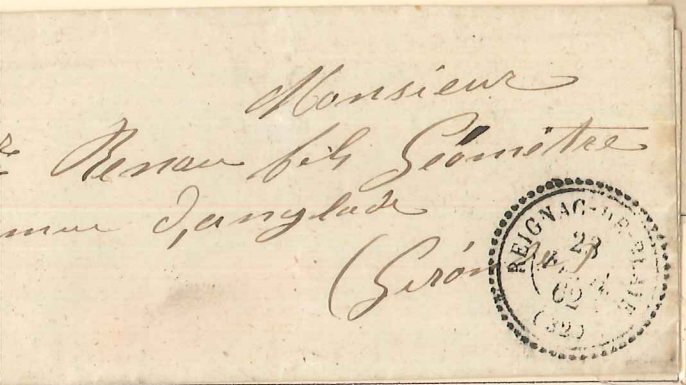 Monsieur
Renau fils Géomètre
d'anglade
(Gironde)
REIGNAC-DE-BLAYE
23
62
(32)